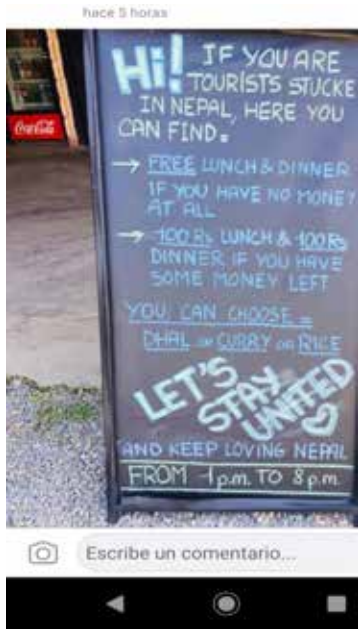 hace 5 horas
Coca-Cola
Hi! IF YOU ARE
TOURISTS STUCKE
IN NEPAL, HERE YOU
CAN FIND:
→ FREE LUNCH & DINNER
IF YOU HAVE NO MONEY
AT ALL
→ 100 Rs LUNCH & 100 Rs
DINNER IF YOU HAVE
SOME MONEY LEFT
YOU CAN CHOOSE =
DHAL or CURRY or RICE
LET'S
STAY
UNITED
AND KEEP LOVING NEPAL
FROM 1 p.m. TO 8 p.m.
Escribe un comentario...